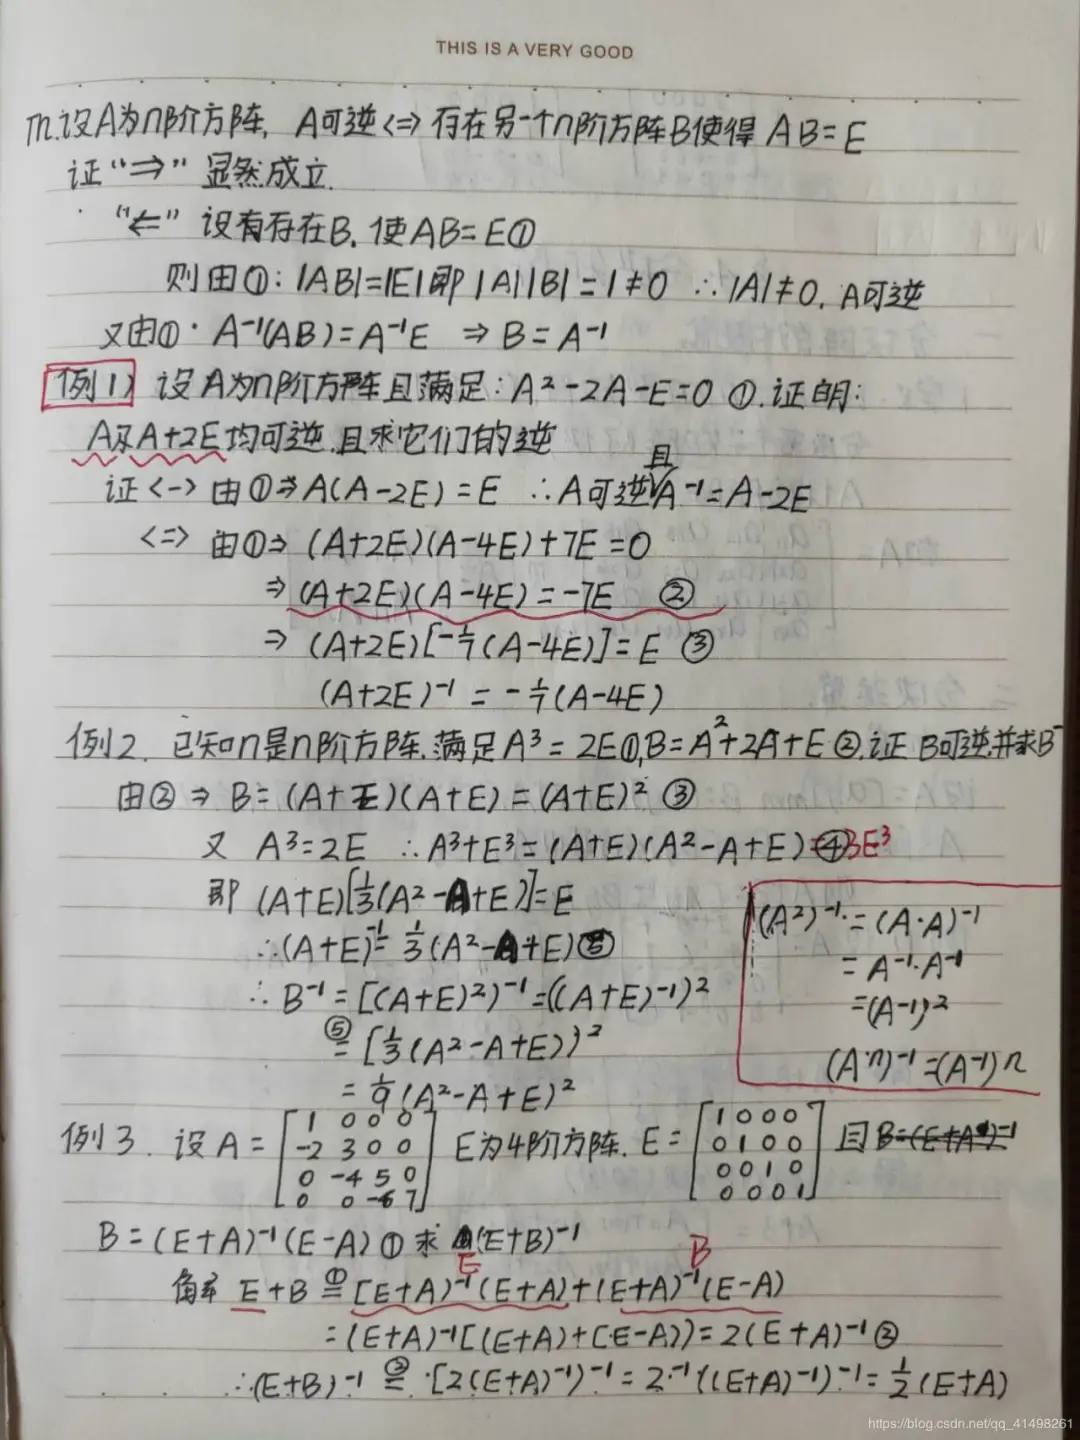 THIS IS A VERY GOOD
Th.设A为n阶方阵, A可逆<=>存在另一个n阶方阵B使得 AB=E
证“⇒”显然成立.
“⇐” 设有存在B. 使AB=E①
则由①: |AB|=|E|即|A||B|=1≠0 ∴|A|≠0, A可逆
又由①· A⁻¹(AB)=A⁻¹E ⇒ B=A⁻¹
例1) 设A为n阶方阵且满足: A²-2A-E=0 ①.证明:
A及A+2E均可逆.且求它们的逆
证<-> 由①⇒A(A-2E)=E ∴A可逆且A⁻¹=A-2E
<=> 由①⇒ (A+2E)(A-4E)+7E=0
⇒ (A+2E)(A-4E)=-7E ②
⇒ (A+2E)[-1/7(A-4E)]=E ③
(A+2E)⁻¹ = -1/7(A-4E)
例2. 已知n是n阶方阵.满足A³=2E①,B=A²+2A+E②.证B可逆,并求B⁻
由②⇒ B=(A+E)(A+E)=(A+E)² ③
又 A³=2E ∴A³+E³=(A+E)(A²-A+E)=④3E³
即 (A+E)[1/3(A²-A+E)]=E
∴(A+E)⁻¹=1/3(A²-A+E)⑤
∴B⁻¹=[(A+E)²)⁻¹=((A+E)⁻¹)²
⑤= [1/3(A²-A+E))²
= 1/9(A²-A+E)²
(A²)⁻¹=(A·A)⁻¹
=A⁻¹·A⁻¹
=(A⁻¹)²
(Aⁿ)⁻¹=(A⁻¹)ⁿ
例3. 设A=[1 0 0 0
-2 3 0 0
0 -4 5 0
0 0 -6 7] E为4阶方阵. E=[1 0 0 0
0 1 0 0
0 0 1 0
0 0 0 1] 且
B=(E+A)⁻¹(E-A) ① 求 (E+B)⁻¹
E B
解 E+B ①= [E+A)⁻¹(E+A)+(E+A)⁻¹(E-A)
=(E+A)⁻¹[(E+A)+(E-A))=2(E+A)⁻¹②
∴(E+B)⁻¹ ②= [2(E+A)⁻¹)⁻¹=2⁻¹((E+A)⁻¹)⁻¹=1/2(E+A)
https://blog.csdn.net/qq_41498261